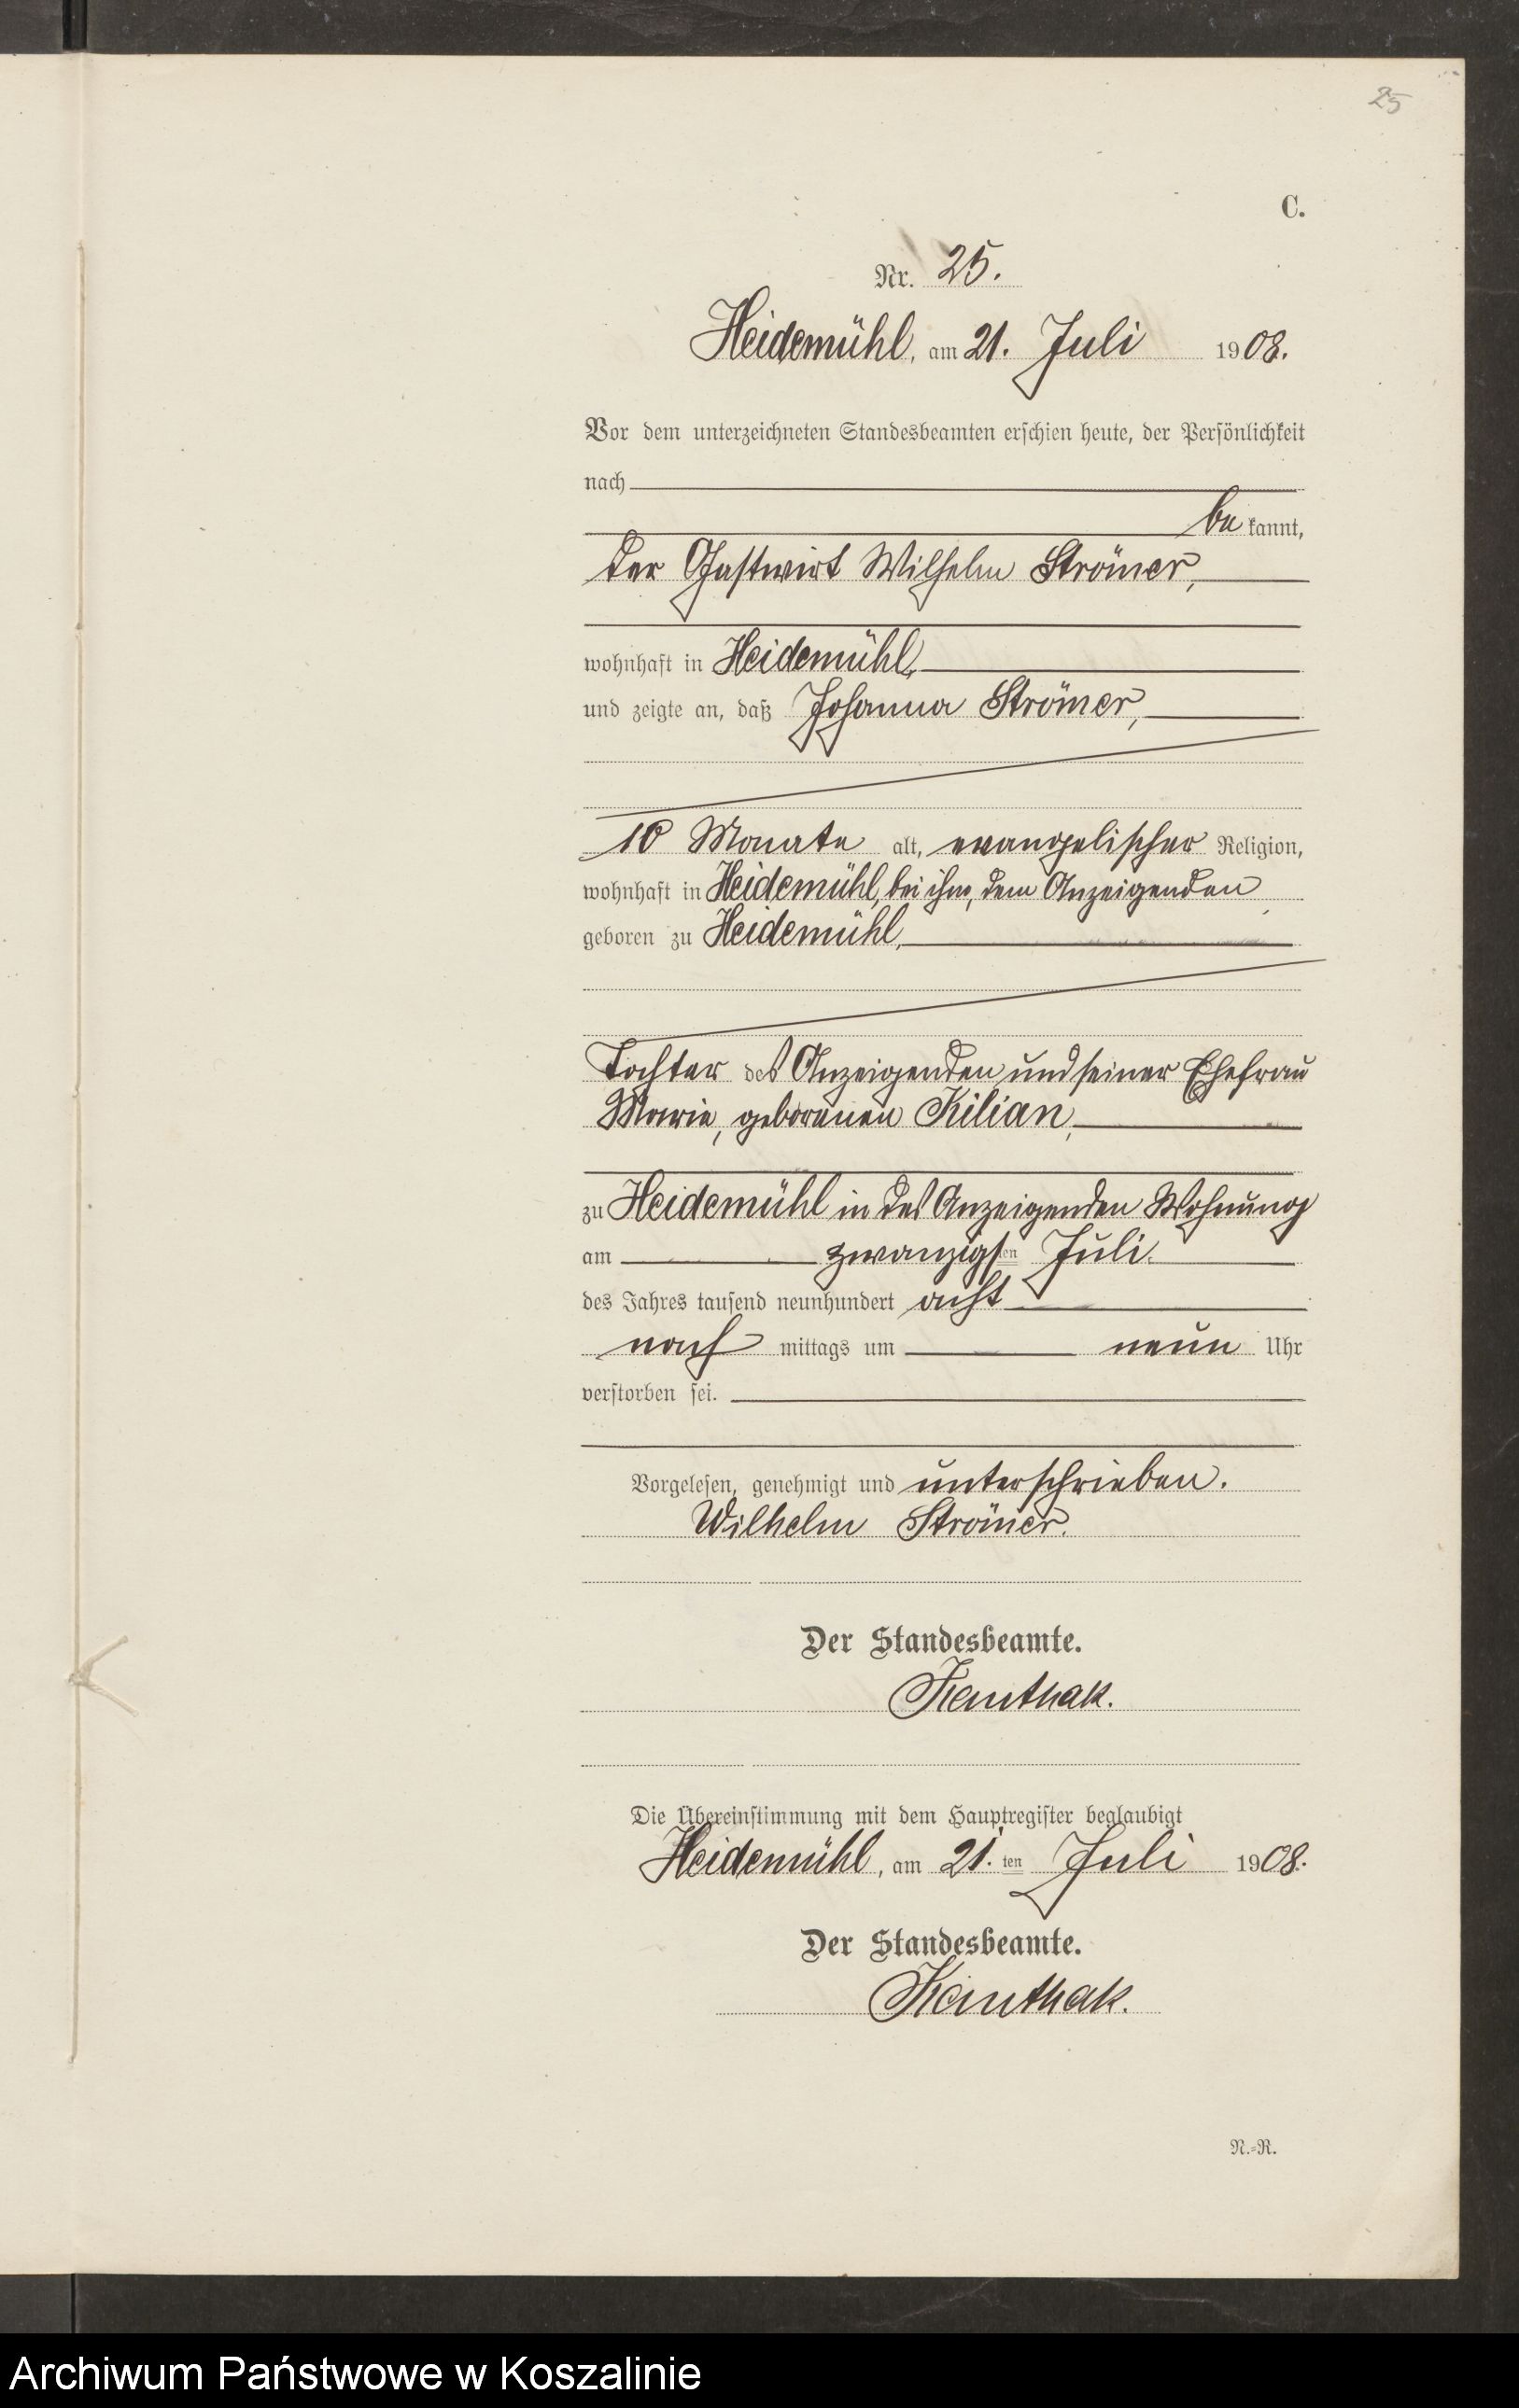 25
C.
Nr. 25.
Heidemühl, am 21. Juli 1908.
Vor dem unterzeichneten Standesbeamten erschien heute, der Persönlichkeit
nach
be kannt,
der Gastwirt Wilhelm Strömer,
wohnhaft in Heidemühl,
und zeigte an, daß Johanna Strömer,
10 Monate alt, evangelischer Religion,
wohnhaft in Heidemühl, bei ihm, dem Anzeigenden
geboren zu Heidemühl,
Tochter des Anzeigenden und seiner Ehefrau
Marie, geborenen Kilian,
zu Heidemühl in des Anzeigenden Wohnung
am zwanzigsten Juli
des Jahres tausend neunhundert acht
nach mittags um neun Uhr
verstorben sei.
Vorgelesen, genehmigt und unterschrieben.
Wilhelm Strömer.
Der Standesbeamte.
Kanthak.
Die Übereinstimmung mit dem Hauptregister beglaubigt
Heidemühl, am 21. ten Juli 1908.
Der Standesbeamte.
Kanthak.
N.-R.
Archiwum Państwowe w Koszalinie